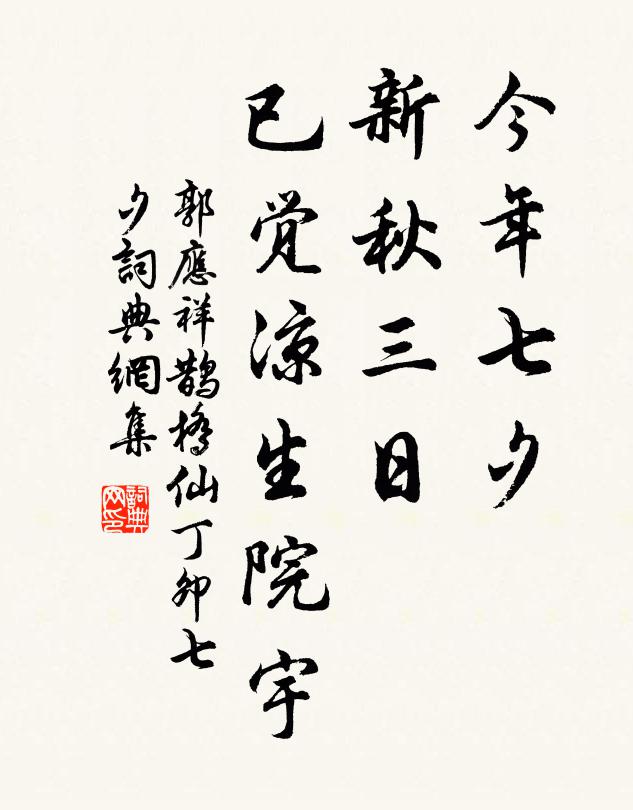 今年七夕
新秋三日
已觉涼生院宇
郭應祥鵲橋仙丁卯七
夕詞典網集
詞典
网印